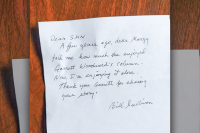 Dear Sun
A few years ago, dear Marry
told me how much she enjoyed
Garrett Woodward's column.
Now I'm enjoying it also.
Thank you Smith for sharing
your story.
Bill